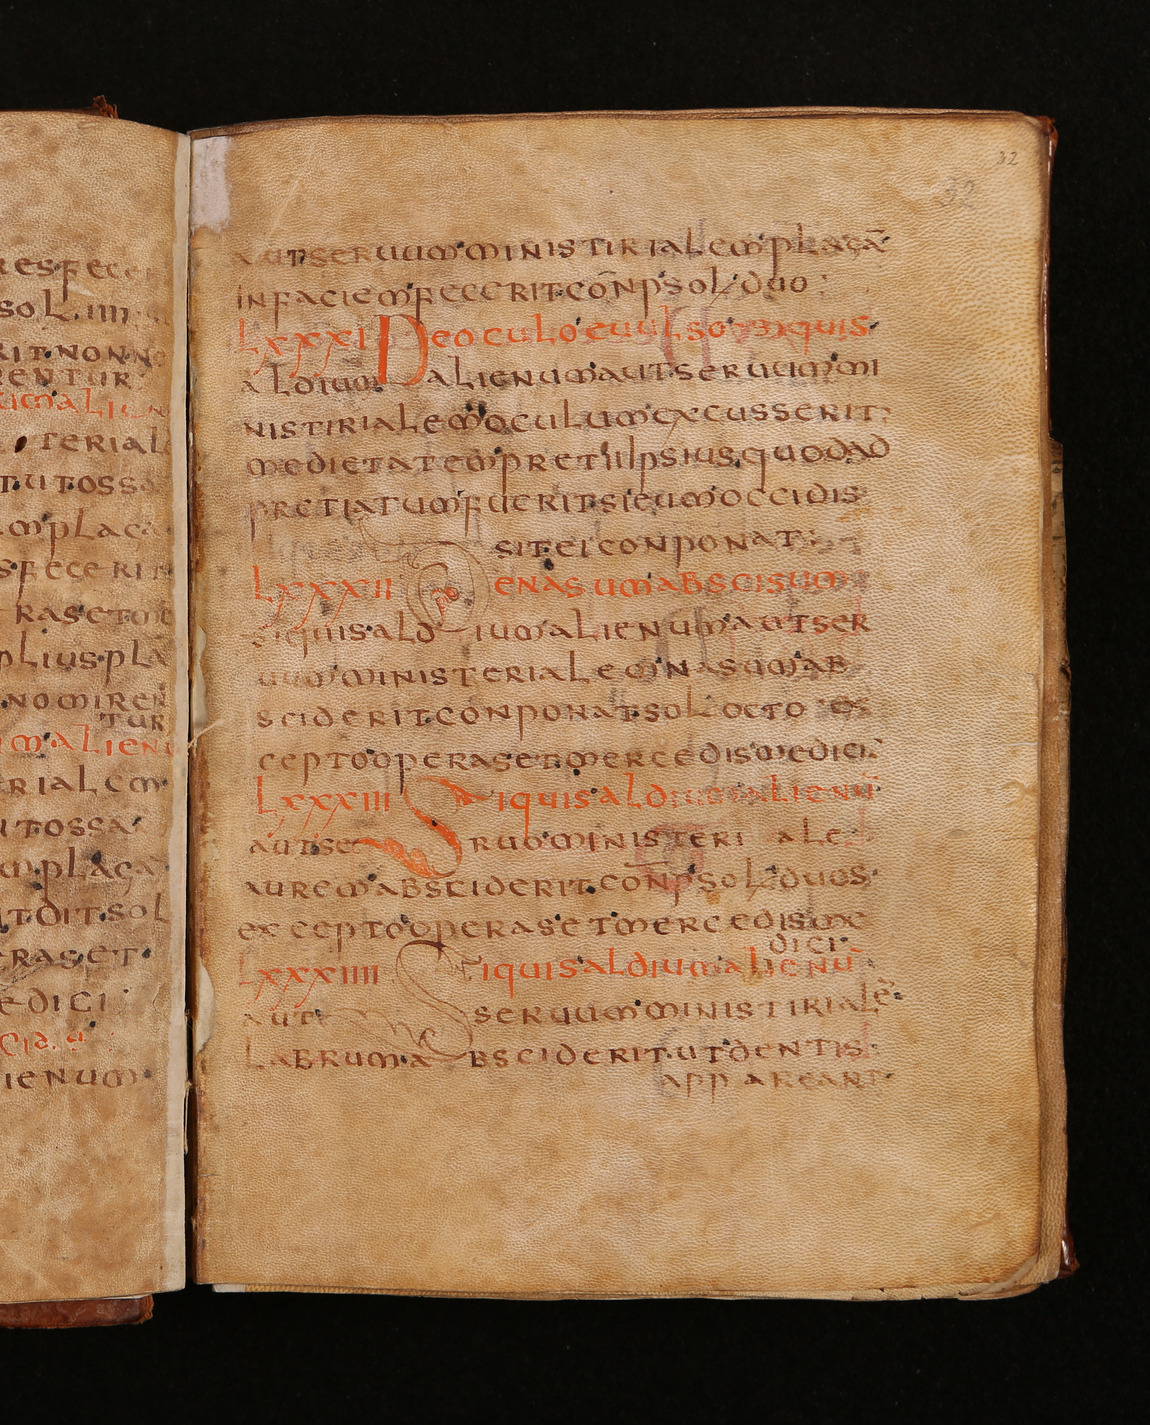 resfecer
sol. iiii
rit. non no
rentur
im alien
terial
tut ossa
em plaga
s feceri
ras et me
plius pla
nomiren
tur
im alieni
rialem
ut ossa
m. plaga
it. dit. sol
eras et
edici
cid. a
ienum
32
32
aut seruum ministirialem plagā
in faciem fecerit. cōnp̄ sol. duo
LXXXI De oculo euulso siquis
aldium alienum aut seruum mi
nistirialem oculum excusserit
medietatem pretii ipsius, quod ad
pretiatum fuerit si eum occidis
sit. ei conponat
LXXXII De nasum abscisum
siquis aldium alienum aut ser
uum ministerialem nasum ab
sciderit. conponat. sol octo ex
cepto operas et mercedis medici
LXXXIII Siquis aldium alienū
aut seruo ministeri ale
aurem absciderit. conp̄ sol. duos
excepto operas et mercedis me
dici
LXXXIIII Siquis aldium alienū
aut sseruum ministirialē
labrum absciderit. ut dentis
appareant